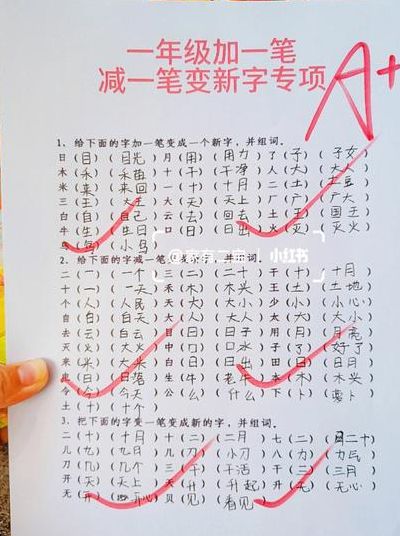 一年级加一笔
减一笔变新字专项
A+
1、给下面的字加一笔变成一个新字，并组词。
日（目）（目光）月（用）（用力）了（子）（子女）
木（禾）（禾苗）十（干）（干净）人（大）（大人）
米（来）（来回）一（十）（十月）二（土）（土豆）
三（王）（大王）大（天）（天上）厂（广）（广大）
白（自）（自己）云（去）（回去）土（王）（国王）
牛（生）（生日）口（日）（日出）火（灭）（灭火）
鸟（小鸟）
小红书
2、给下面的字减一笔
二（一）（一个）三（二）（二十）干（十）（十月）
十（一）（一天）禾（木）（木头）王（土）（土地）
个（人）（人民）天（大）（大小）少（小）（小心）
自（白）（白天）大（人）（大人）太（大）（大小）
去（云）（白云）目（日）（日子）用（月）（月亮）
灭（火）（大火）中（口）（口水）子（了）（好了）
来（米）（大米）白（日）（日出）田（日）（日月）
生（牛）（老牛）本（木）（木头）
令（今）（今天）么（公）（什么）下（卜）（萝卜）
土（十）（十个）
3、把下面的字变一笔变成新的字，并组词。
二（十）（十月）十（二）（二月）七（二）（二十）
儿（九）（九日）几（刀）（小刀）八（力）（力气）
刀（几）（几个）三（干）（干活）干（三）（三月）
开（天）（天上）天（升）（升起）开（无）（无心）
无（开）（开心）贝（见）（看见）